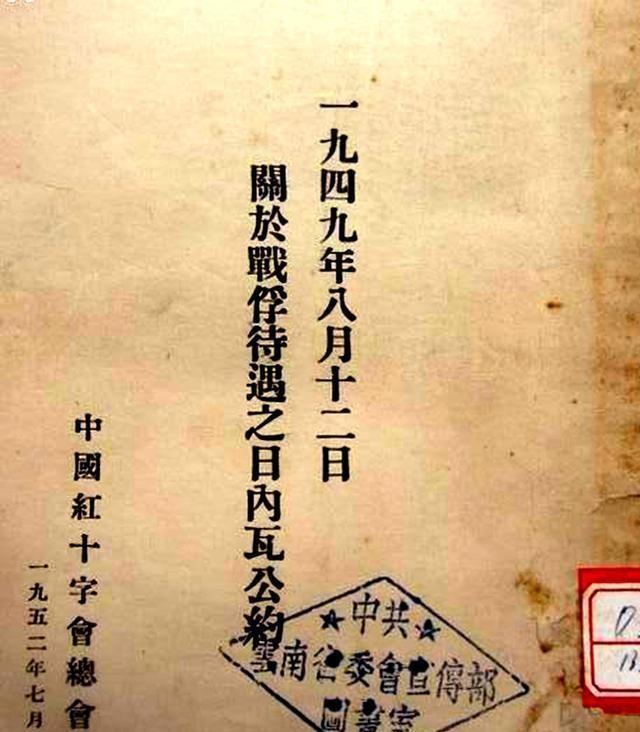 一九四九年八月十二日
關於戰俘待遇之日內瓦公約
中國紅十字會總會
一九五二年七月
★中共★
雲南省委會宣傳部
圖書室